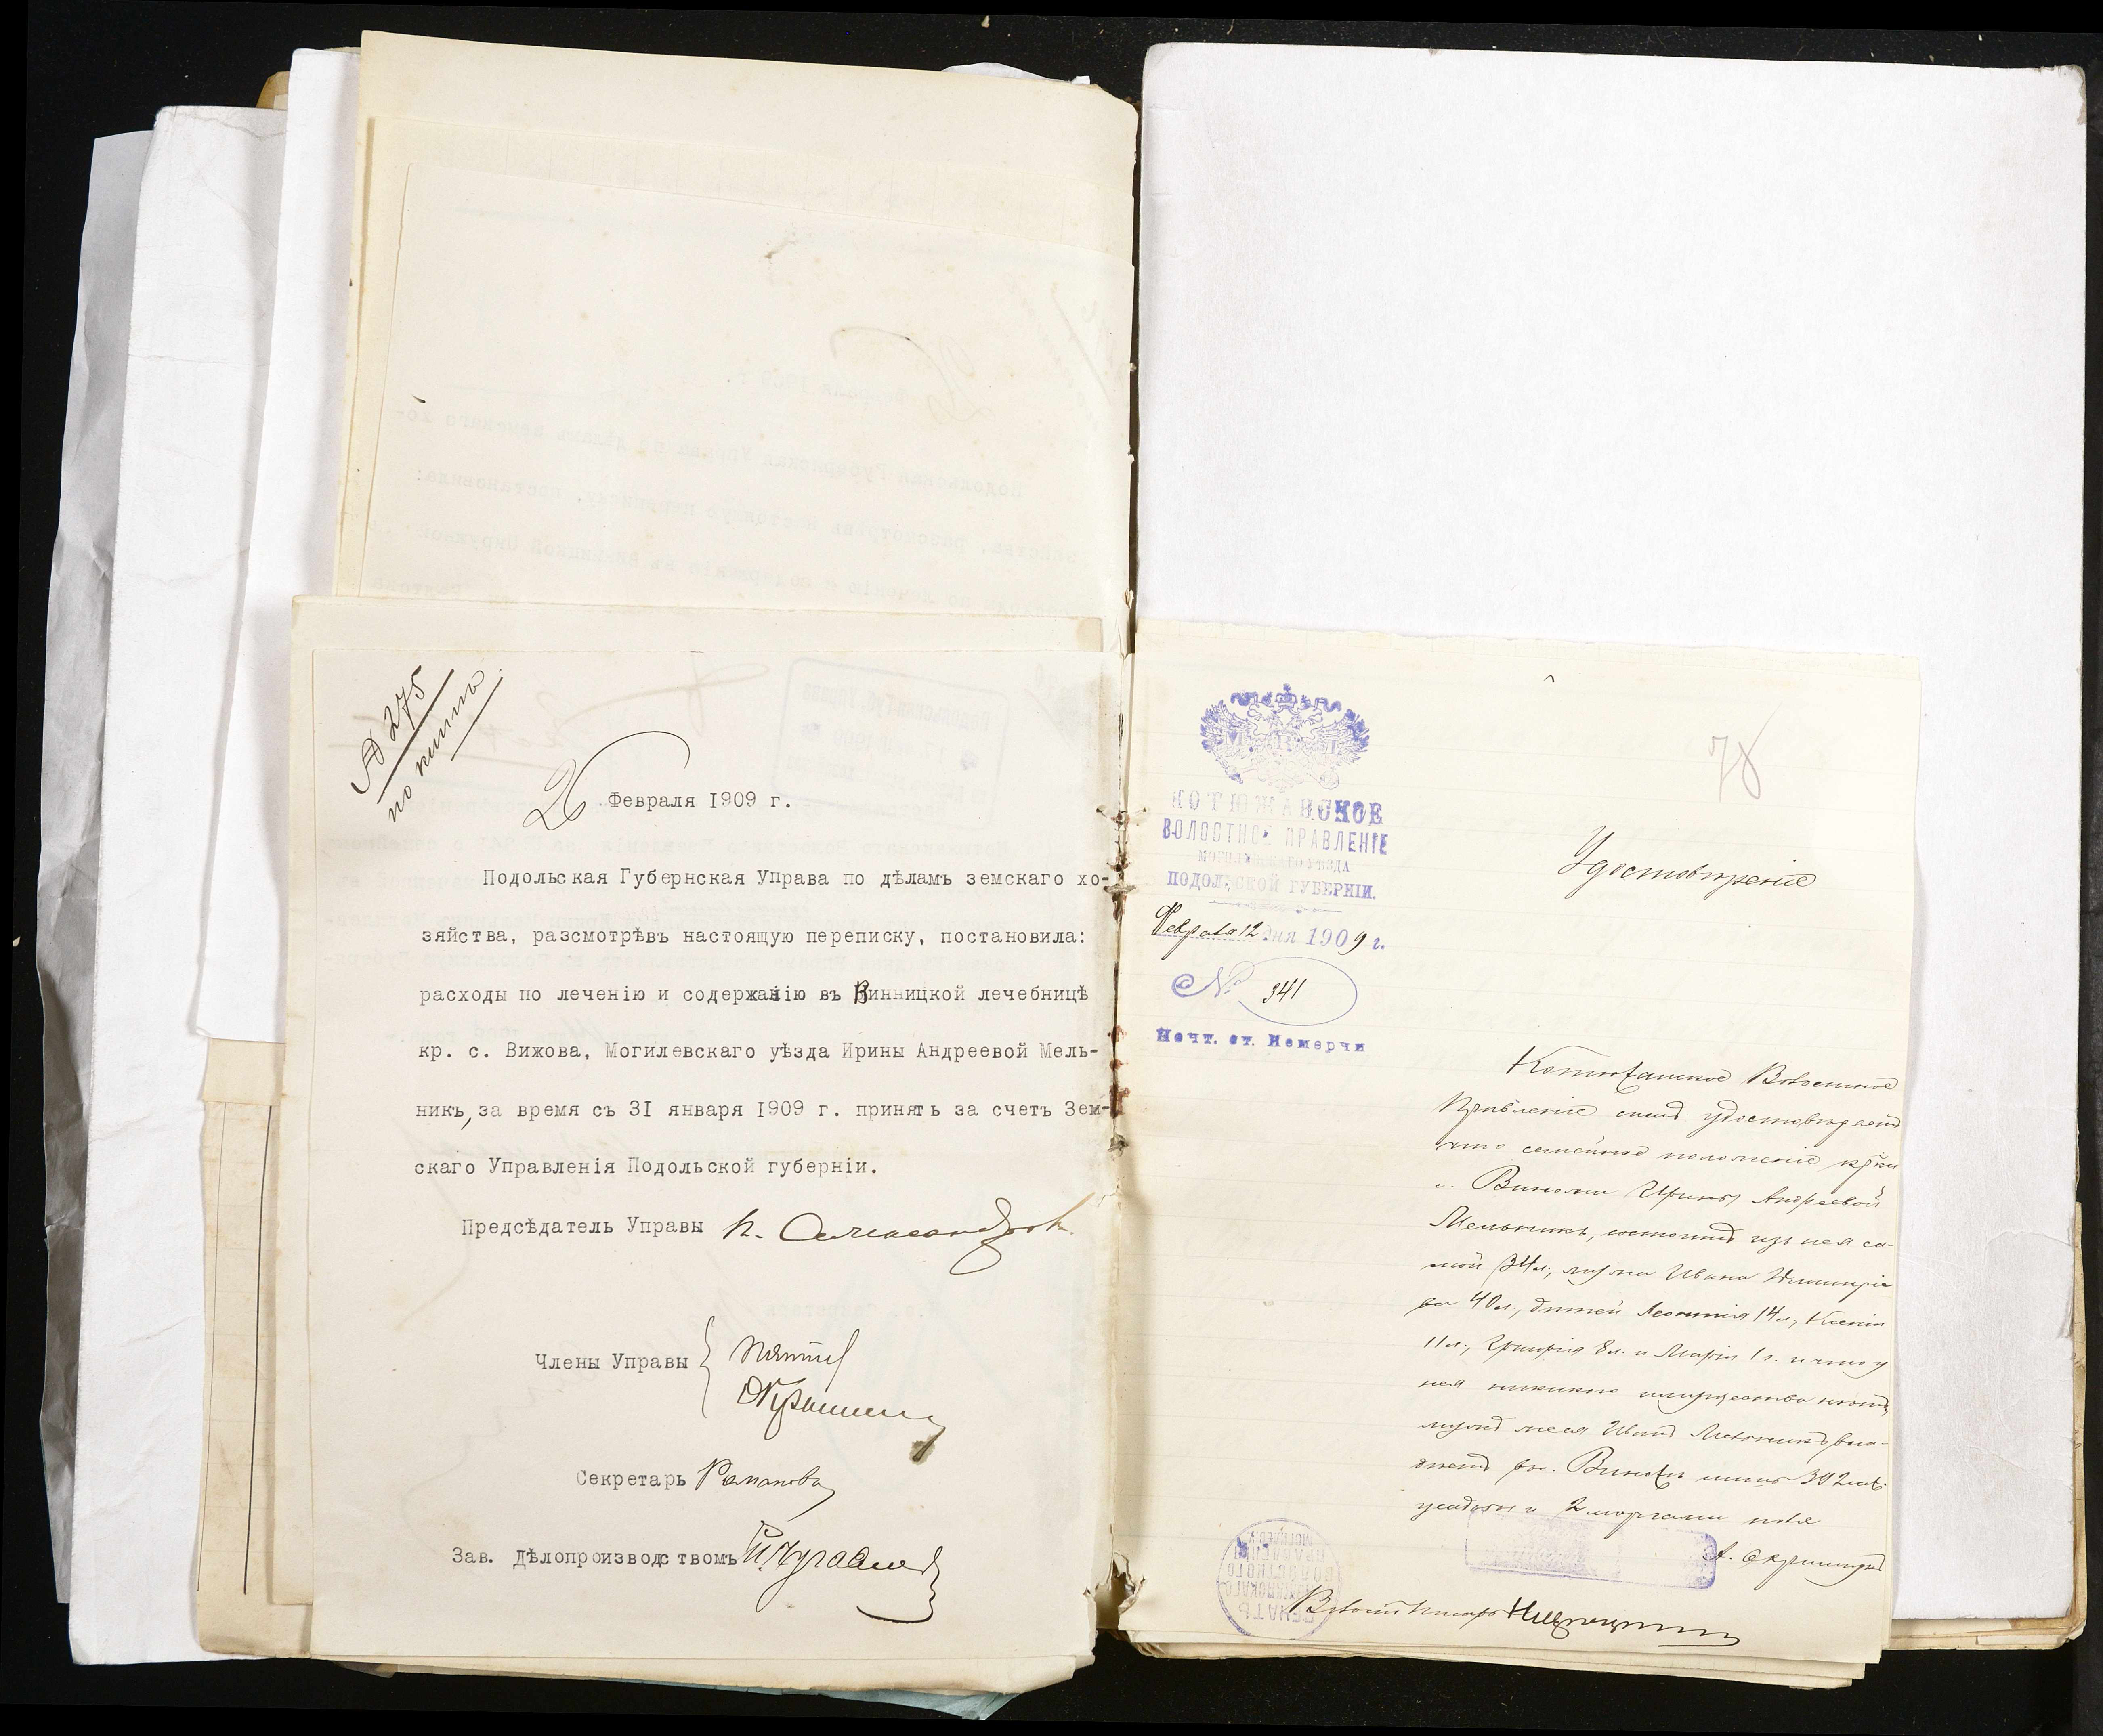 № 275
по книгѣ
26 Февраля 1909 г.
Подольская Губернская Управа по дѣламъ земскаго хо-
зяйства, разсмотрѣвъ настоящую переписку, постановила:
расходы по леченію и содержанію въ Винницкой лечебницѣ
кр. с. Вижова, Могилевскаго уѣзда Ирины Андреевой Мель-
никъ, за время съ 31 января 1909 г. принять за счетъ Зем-
скаго Управленія Подольской губерніи.
Предсѣдатель Управы П. Александров
Члены Управы
Секретарь Романовъ
Зав. Дѣлопроизводствомъ
78
КОТЮЖАНСКОЕ
ВОЛОСТНОЕ ПРАВЛЕНІЕ
МОГИЛЕВСКАГО УѢЗДА
ПОДОЛЬСКОЙ ГУБЕРНІИ.
Февраля 12 дня 1909 г.
№ 341
Почт. ст. Немерчи
Удостовѣреніе
Котюжанское Волостное
Правленіе симъ удостовѣряетъ
что семейное положеніе кр-ки
с. Вижова Ирины Андреевой
Мельникъ, состоитъ изъ нея са-
мой 34 л., мужа Ивана Димитріе
ва 40 л., дѣтей Леонтія 14 л., Ксеніи
11 л., Григорія 8 л. и Маріи 1 г. и что у
нея никакого имущества нѣтъ,
мужъ же ея Иванъ Мельникъ вла-
дѣетъ въ с. 392
усадьбы и 2 моргами поля
Волостн. Писарь